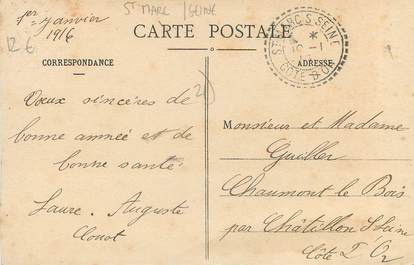 1er janvier
1916
St MARC / SEINE
12 €
CARTE POSTALE
CORRESPONDANCE
ADRESSE
ST MARC S. SEINE
COTE D'OR
Vœux sincères de
bonne année et de
bonne santé
Laure. Auguste
Monsieur et Madame
Chaumont le Bois
par Châtillon S/Seine
Côte d'Or